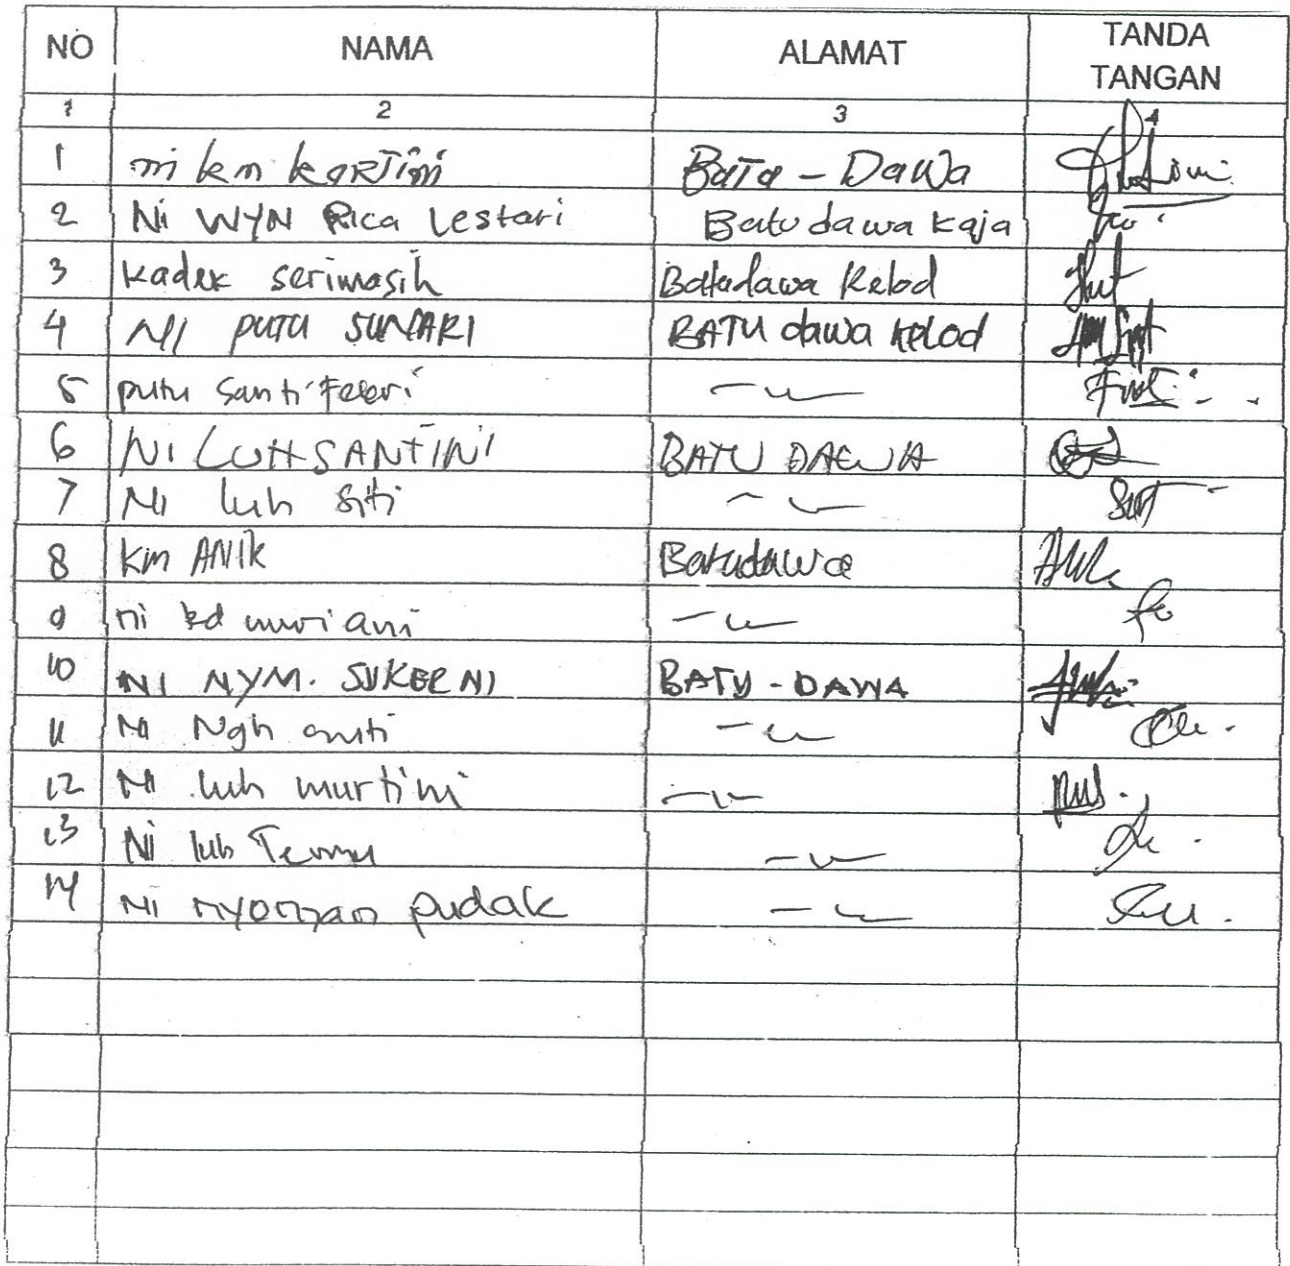 NO NAMA ALAMAT TANDA TANGAN
1 2 3 4
1 ni km kaRTini BaTa - DaWa
2 Ni WYN Rica Lestari Batu dawa Kaja
3 kadek serimasih Batudawa Kelod
4 NI PUTU SUNARI BATU dawa kelod
5 putu santi
6 NI LUH SANTINI BATU DAWA
7 Ni luh Siti
8 km ANIK Batudawa
9 ni kd muriani
10 NI NYM. SUKERNI BATU - DAWA
11 Ni Ngh
12 Ni luh murtini
13 Ni luh Temu
14 Ni nyoman pudak